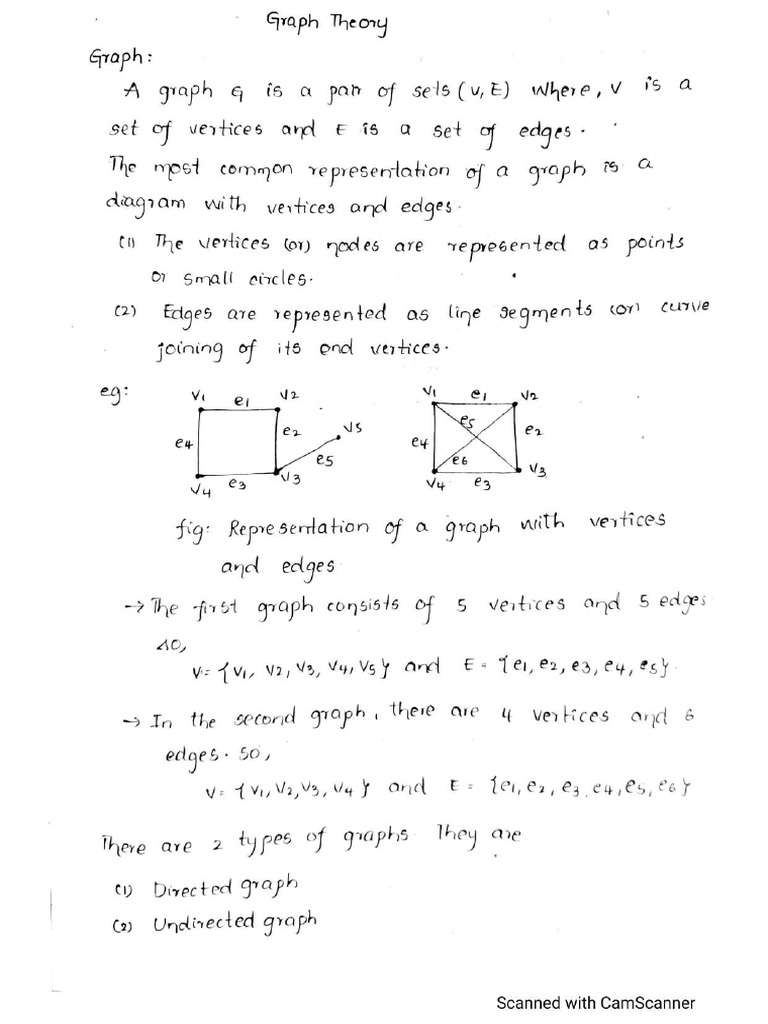 Graph Theory
Graph:
A graph G is a pair of sets (V, E) where, V is a
set of vertices and E is a set of edges.
The most common representation of a graph is a
diagram with vertices and edges.
(1) The vertices (or) nodes are represented as points
or small circles.
(2) Edges are represented as line segments (or) curve
joining of its end vertices.
eg:
V1 e1 V2
e4 e2 V5
e5
V4 e3 V3
V1 e1 V2
e5
e4 e2
e6
V4 e3 V3
fig: Representation of a graph with vertices
and edges
→ The first graph consists of 5 vertices and 5 edges
so,
V = {V1, V2, V3, V4, V5} and E = {e1, e2, e3, e4, e5}.
→ In the second graph, there are 4 vertices and 6
edges. so,
V = {V1, V2, V3, V4} and E = {e1, e2, e3, e4, e5, e6}
There are 2 types of graphs. They are
(1) Directed graph
(2) Undirected graph
Scanned with CamScanner